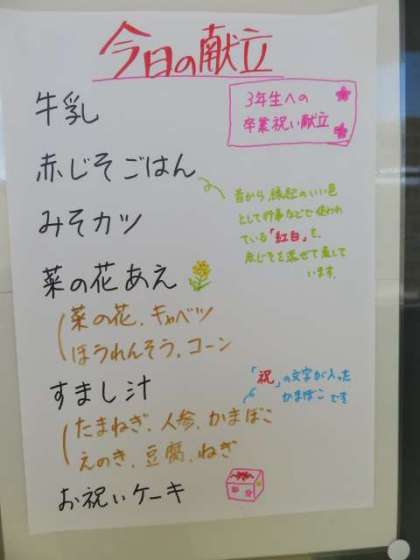 今日の献立
3年生への
卒業祝い献立
牛乳
赤じそごはん
昔から、縁起のいい色
として行事などで使われ
ている「紅白」を、
赤じそを混ぜて表して
います。
みそカツ
菜の花あえ
菜の花、キャベツ
ほうれんそう、コーン
すまし汁
「祝」の文字が入った
かまぼこです
たまねぎ、人参、かまぼこ
えのき、豆腐、ねぎ
お祝いケーキ